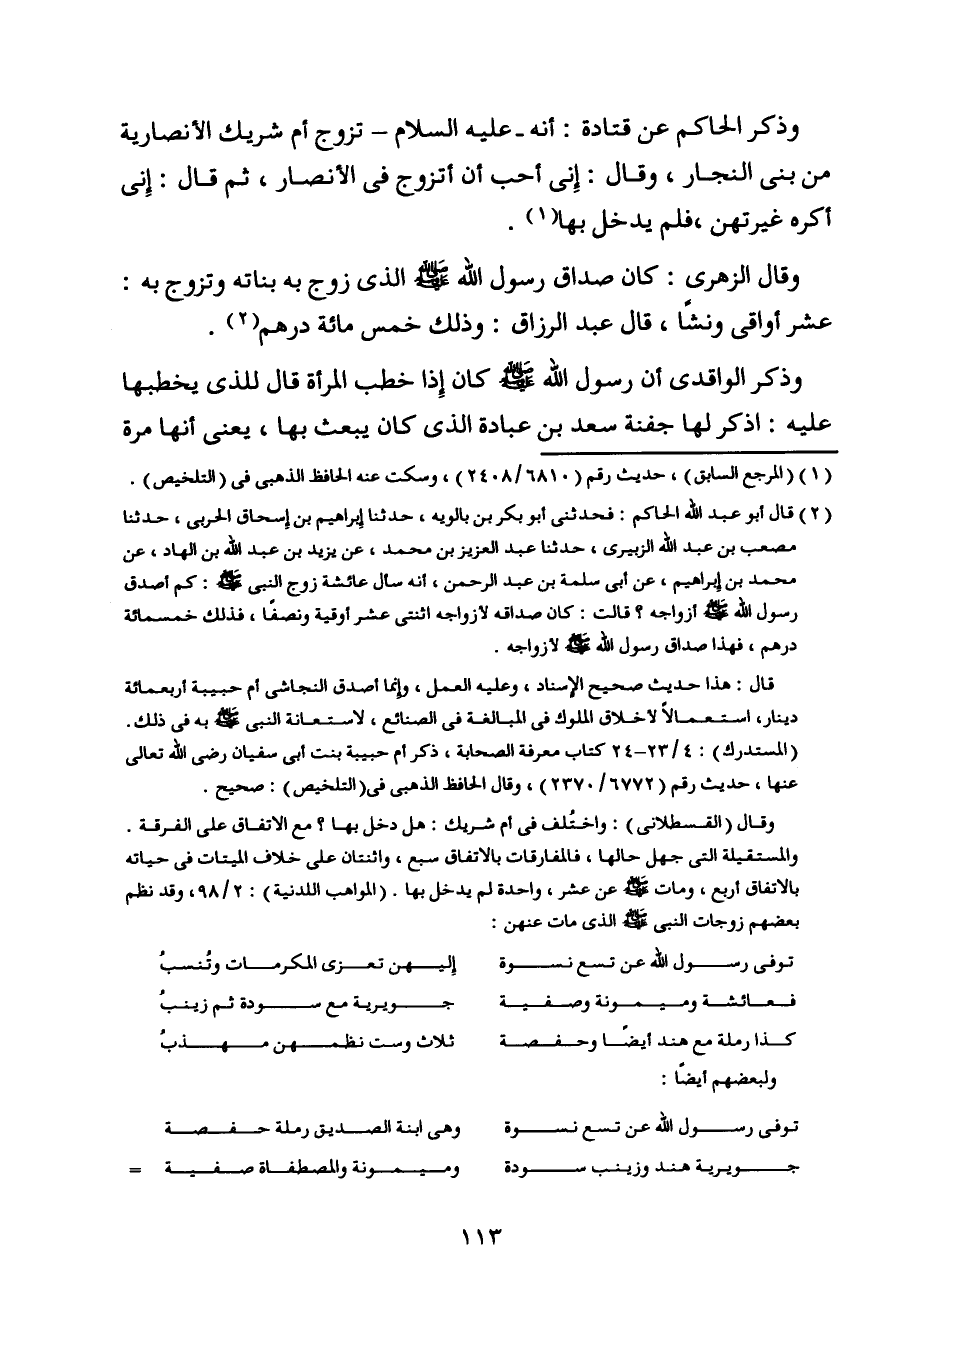 وذكر الحاكم عن قتادة : أنه ـ عليه السلام – تزوج أم شريك الأنصارية
من بنى النجار ، وقال : إنى أحب أن أتزوج فى الأنصار ، ثم قال : إنى
أكره غيرتهن ،فلم يدخل بها(١) .
وقال الزهرى : كان صداق رسول الله ﷺ الذى زوج به بناته وتزوج به :
عشر أواقى ونشًا ، قال عبد الرزاق : وذلك خمس مائة درهم(٢) .
وذكر الواقدى أن رسول الله ﷺ كان إذا خطب المرأة قال للذى يخطبها
عليه : اذكر لها جفنة سعد بن عبادة الذى كان يبعث بها ، يعنى أنها مرة
(١) (المرجع السابق) ، حديث رقم (٢٤٠٨/٦٨١٠) ، وسكت عنه الحافظ الذهبى فى (التلخيص) .
(٢) قال أبو عبد الله الحاكم : فحدثنى أبو بكر بن بالويه ، حدثنا إبراهيم بن إسحاق الحربى ، حدثنا
مصعب بن عبد الله الزبيرى ، حدثنا عبد العزيز بن محمد ، عن يزيد بن عبد الله بن الهاد ، عن
محمد بن إبراهيم ، عن أبى سلمة بن عبد الرحمن ، أنه سأل عائشة زوج النبى ﷺ : كم أصدق
رسول الله ﷺ أزواجه ؟ قالت : كان صداقه لأزواجه اثنتى عشر أوقية ونصفًا ، فذلك خمسمائة
درهم ، فهذا صداق رسول الله ﷺ لأزواجه .
قال : هذا حديث صحيح الإسناد ، وعليه العمل ، وإنما أصدق النجاشى أم حبيبة أربعمائة
دينار، استعمالاً لأخلاق الملوك فى المبالغة فى الصنائع ، لاستعانة النبى ﷺ به فى ذلك.
(المستدرك) : ٤/ ٢٣–٢٤ كتاب معرفة الصحابة ، ذكر أم حبيبة بنت أبى سفيان رضى الله تعالى
عنها ، حديث رقم (٢٣٧٠/٦٧٧٢) ، وقال الحافظ الذهبى فى(التلخيص) : صحيح .
وقال (القسطلانى) : واختُلف فى أم شريك : هل دخل بها ؟ مع الاتفاق على الفرقة .
والمستقيلة التى جهل حالها ، فالمفارقات بالاتفاق سبع ، واثنتان على خلاف الميتات فى حياته
بالاتفاق أربع ، ومات ﷺ عن عشر ، واحدة لم يدخل بها . (المواهب اللدنية) : ٢/ ٩٨، وقد نظم
بعضهم زوجات النبى ﷺ الذى مات عنهن :
توفى رسـول الله عن تسع نسـوة إليـهن تعـزى المكرمـات وتُنسبُ
فـعـائشـة وميـمونة وصفـيـة جـويرية مع سـودة ثـم زينبُ
كـذا رملة مع هند أيضًـا وحـفـصـة ثلاث وست نظمـهن مـهـذبُ
ولبعضهم أيضًا :
توفى رسـول الله عن تسع نسـوة وهى ابنة الصـديق رملة حـفـصـة
جـويرية هنـد وزينب سـودة وميـمونة والمصطفـاة صـفـيـة =
١١٣